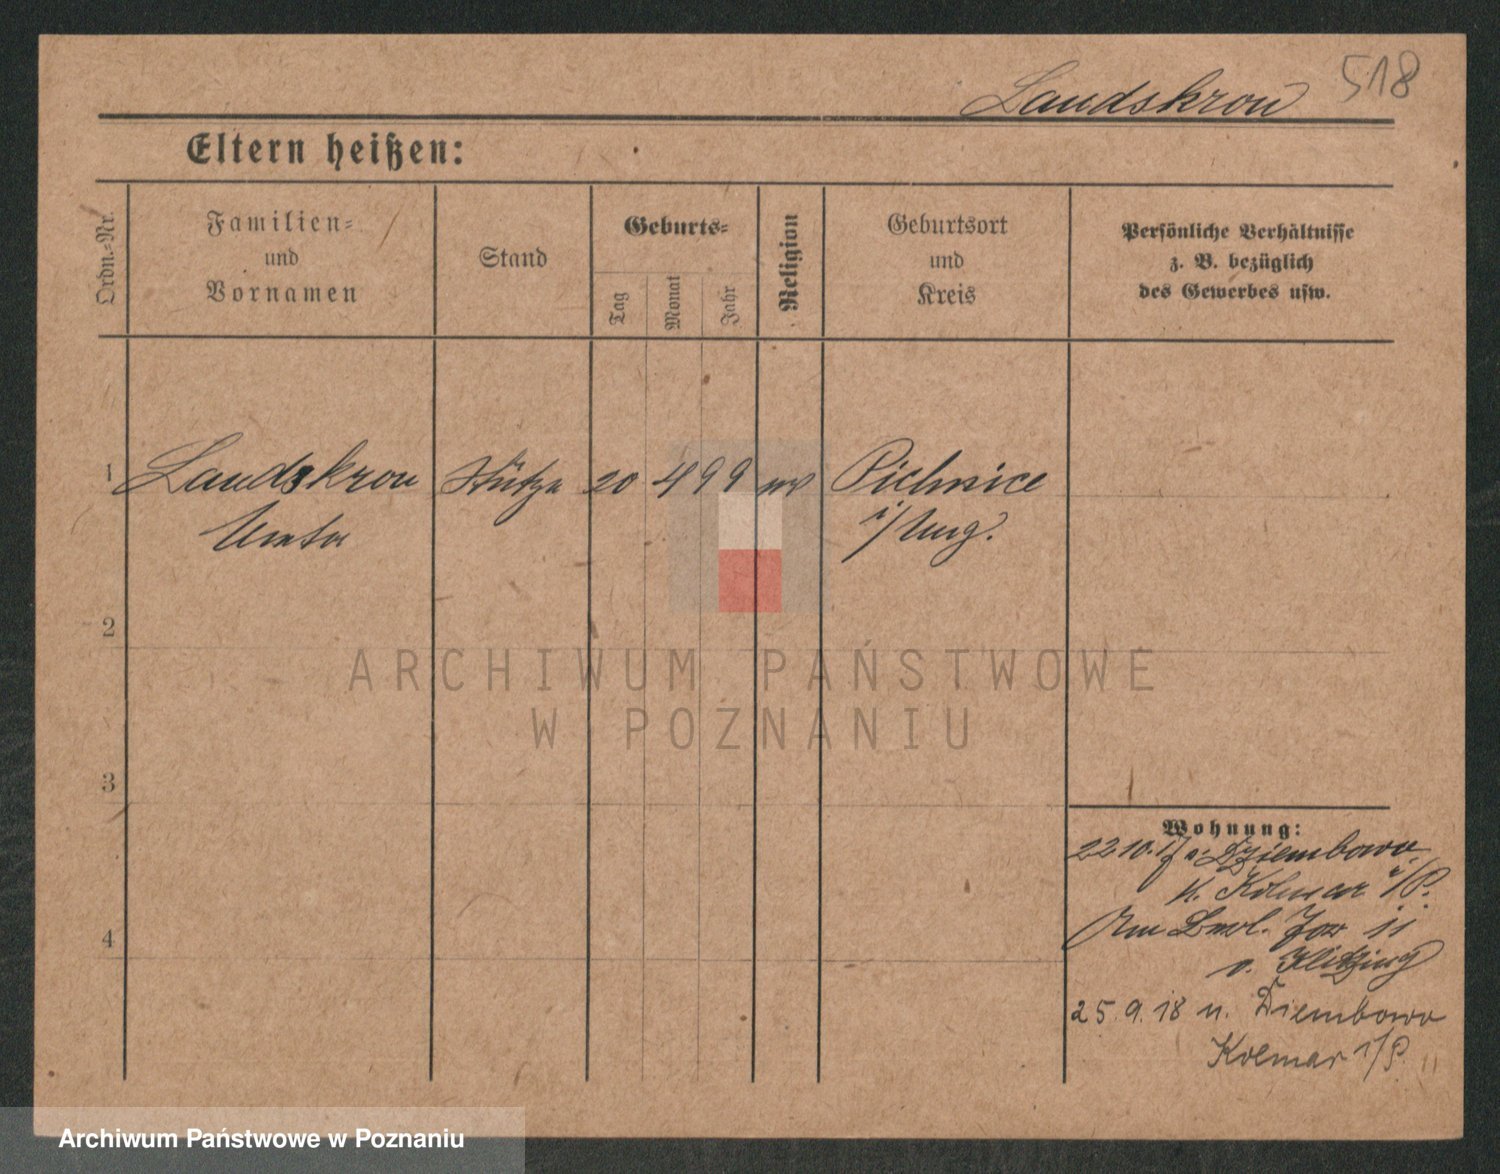 518
Landskron
Eltern heißen:
Ordn.-Nr.
Familien-
und
Vornamen
Stand
Geburts-
Tag
Monat
Jahr
Religion
Geburtsort
und
Kreis
Persönliche Verhältnisse
z. B. bezüglich
des Gewerbes usw.
1
Landskron
Stütze
20
4
99
Pilnice
i/Ung.
2
3
4
ARCHIWUM PAŃSTWOWE
W POZNANIU
Wohnung:
22 10. 17 Dziembowo
K. Kolmar i/P.
v. Klitzing
25. 9. 18 n. Diembowo
Kolmar i/P.
Archiwum Państwowe w Poznaniu